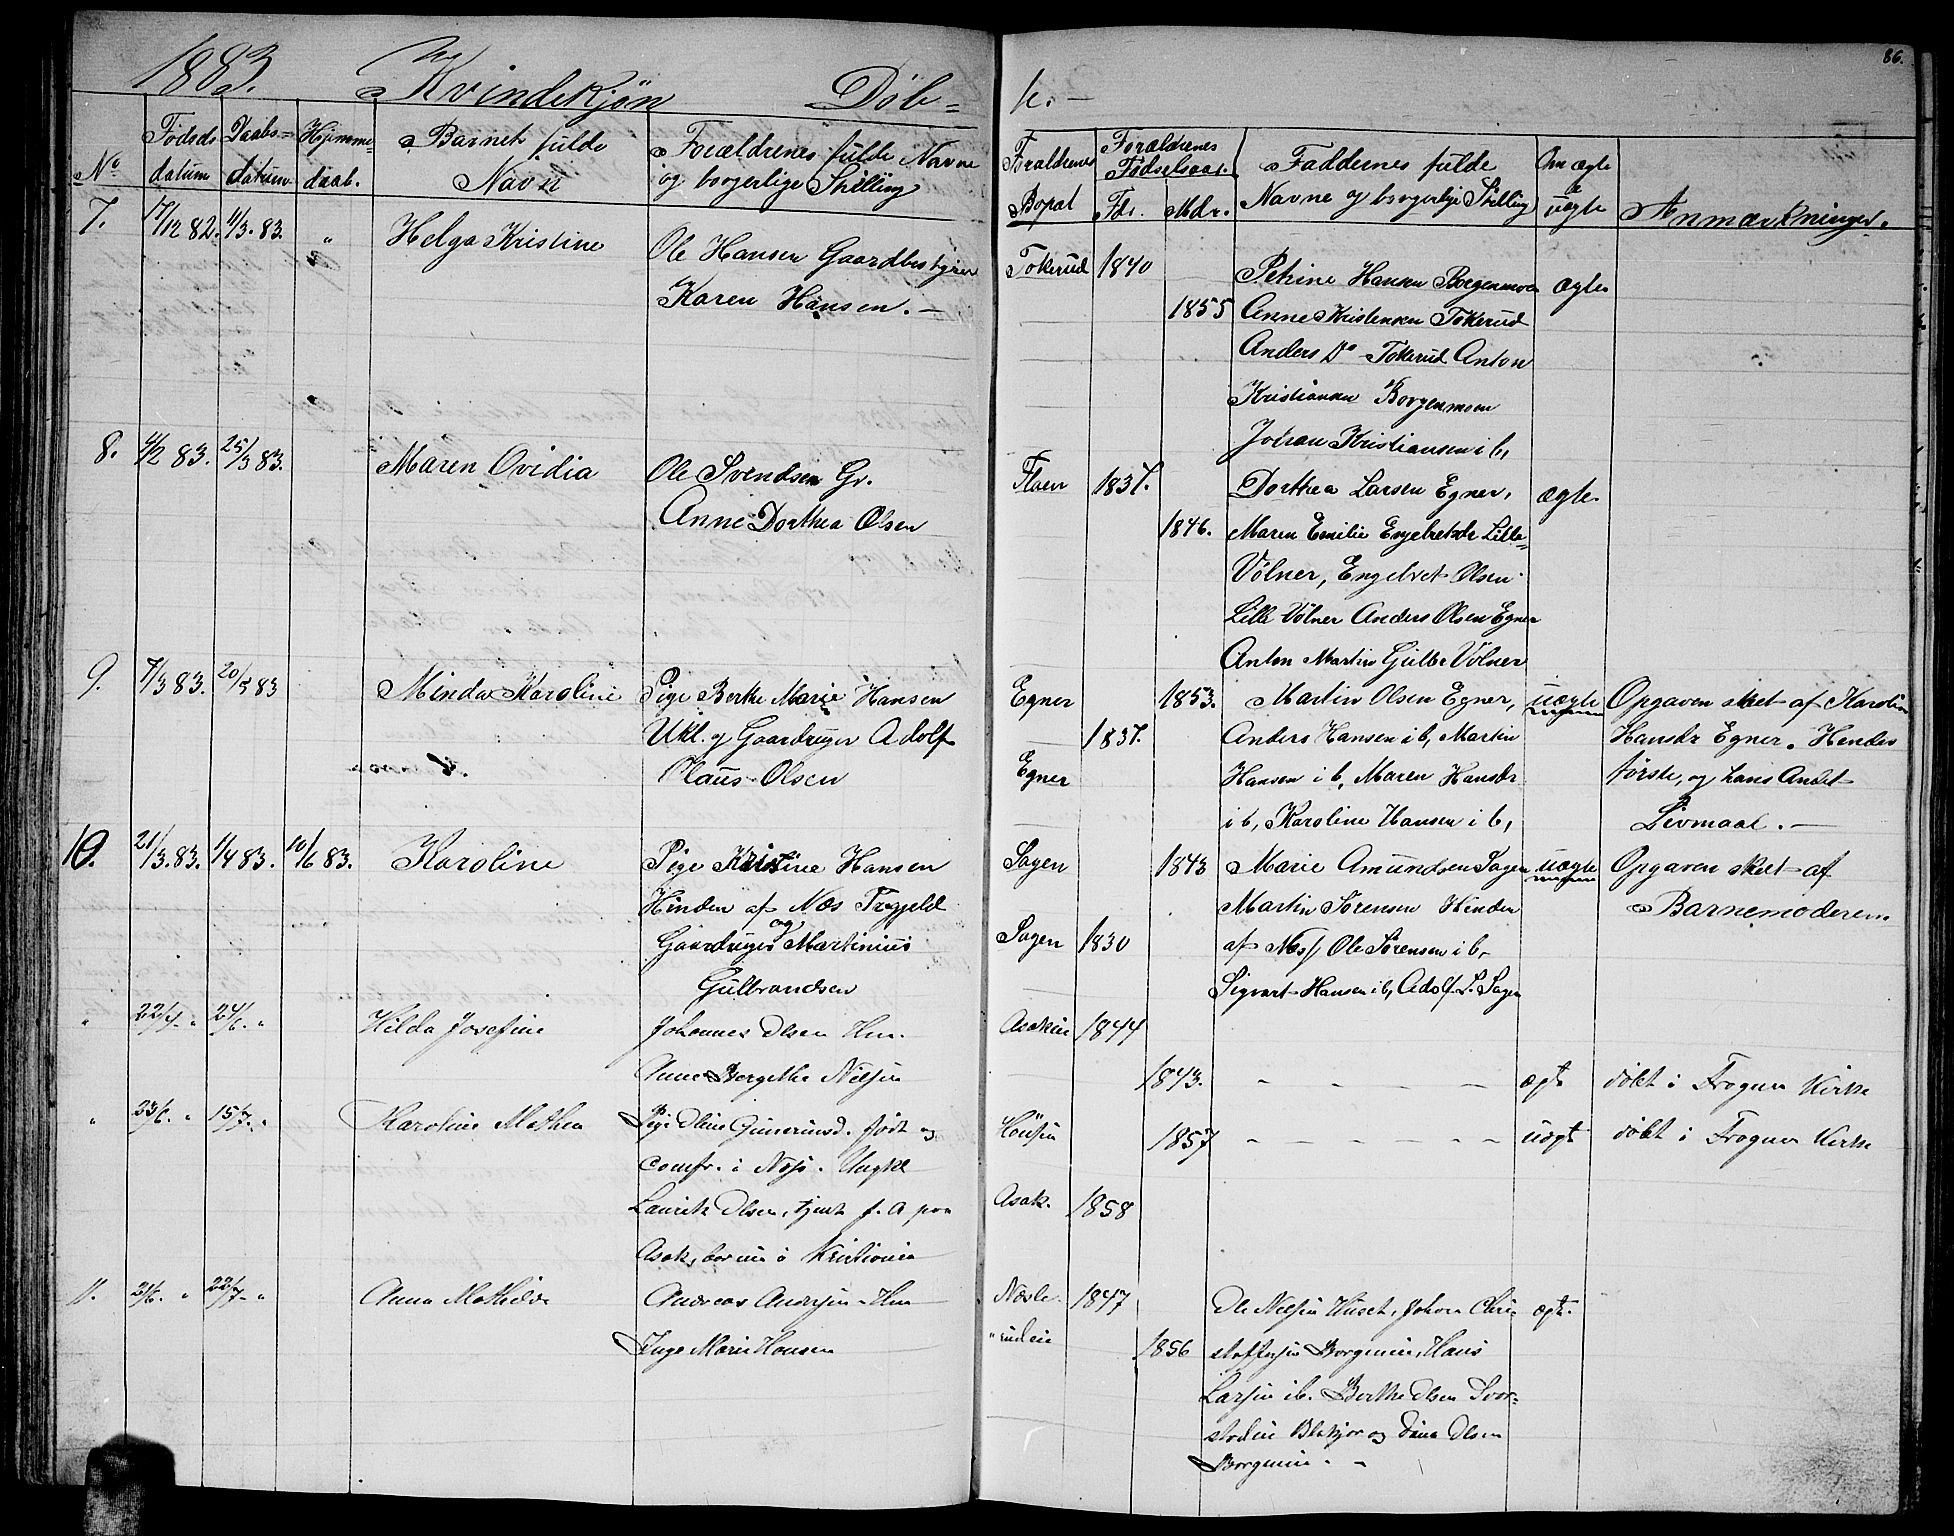 86.
1883. Kvindekjøn Døb=
te. -
No Fødsels datum Daabs= datum Hjemme daab. Barnets fulde Navn Forældrenes fulde Navne og borgerlige Stilling
Forældrenes Bopæl Forældrenes Fødselsaar. Fdr. Mdr. Faddernes fulde Navne og borgerlige Stilling Om ægte uægte Anmærkninger.
7. 17/12 82. 4/3. 83. " Helga Kristine
Ole Hansen Gaardbestyrer
Karen Hansen. -
Tokerud 1840
1855
Petrine Hansen Borgenmoen ægte
Anne Kristensen Tokerud
Anders Do - Tokerud Anton
Kristiansen Borgenmoen
Johan Kristiansen ib,
8. 4/2 83. 25/3 83. Maren Ovidia
Ole Svendsen Gr.
Anne Dorthea Olsen
Flaen 1837.
1846.
Dorthea Larsen Egner, ægte.
Maren Emilie Engebretsdr Lille=
Vølner, Engebret Olsen
Lille Vølner Anders Olsen Egner
Anton Martin Gulbr Vølner
9. 7/3 83. 20/5 83 Minda Karoline
Pige Berthe Marie Hansen
Ukl. og Gaardbruger Adolf
Claus Olsen
Egner 1853.
1837.
Egner
Martin Olsen Egner, uægte
Anders Hansen ib, Martin
Hansen ib, Maren Hansdr
ib, Karoline Hansen ib,
Opgaven skeet af Karoline
Hansdr Egner. Hendes
første, og hans Andet
Leiermaal. -
10. 21/3. 83. 1/4 83. 10/6 83. Karoline
Pige Kristine Hansen
Hinden af Næs Prgjeld
og
Gaardbruger Martinius
Gulbrandsen
Sagen 1843
Sagen 1830
Marie Amundsen Sagen uægte
Martin Sørensen Hinden
af Næs, Ole Sørensen ib,
Sigvart Hansen ib, Adolf L. Sagen
Opgaven skeet af
Barnemoderen.
" 22/4. " 24/6. " Hilda Josefine
Johannes Olsen Hm.
Anne Bergethe Nilsen
Asakeie 1844
1843. - - - - - ægt døbt i Frogner Kirke
" 23/6. " 15/7. " Karoline Mathea
Pige Oline Guneriusd. født og
comfr. i Næs. Ungkl
Laurits Olsen, tjent f. A paa
Asak, bor nu i Kristiania
1857 - - - - - - uægt døbt i Frogner Kirke
Asak. 1858
11. 21/6. " 22/7. " Anna Mathilde
Andreas Andersen Hm
Inge Marie Hansen
Næsle- 1847
" rudeie 1856
Ole Nilsen Huset, Johan Chri- ægt.
stoffersen Borgeneie, Hans
Larsen ib. Berthe Olsen Svar-
stadeie Blakjer og Dina Olsen
Borgeneie. -